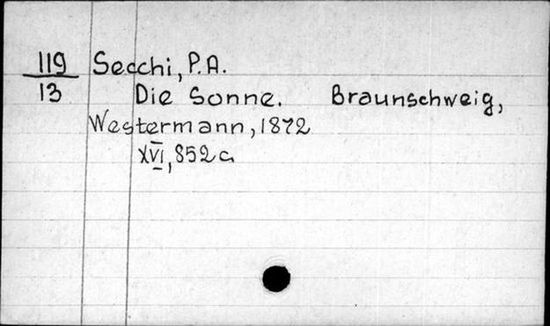 119 Secchi, P.A.
13 Die Sonne. Braunschweig,
Westermann, 1872
XVI, 852 c.